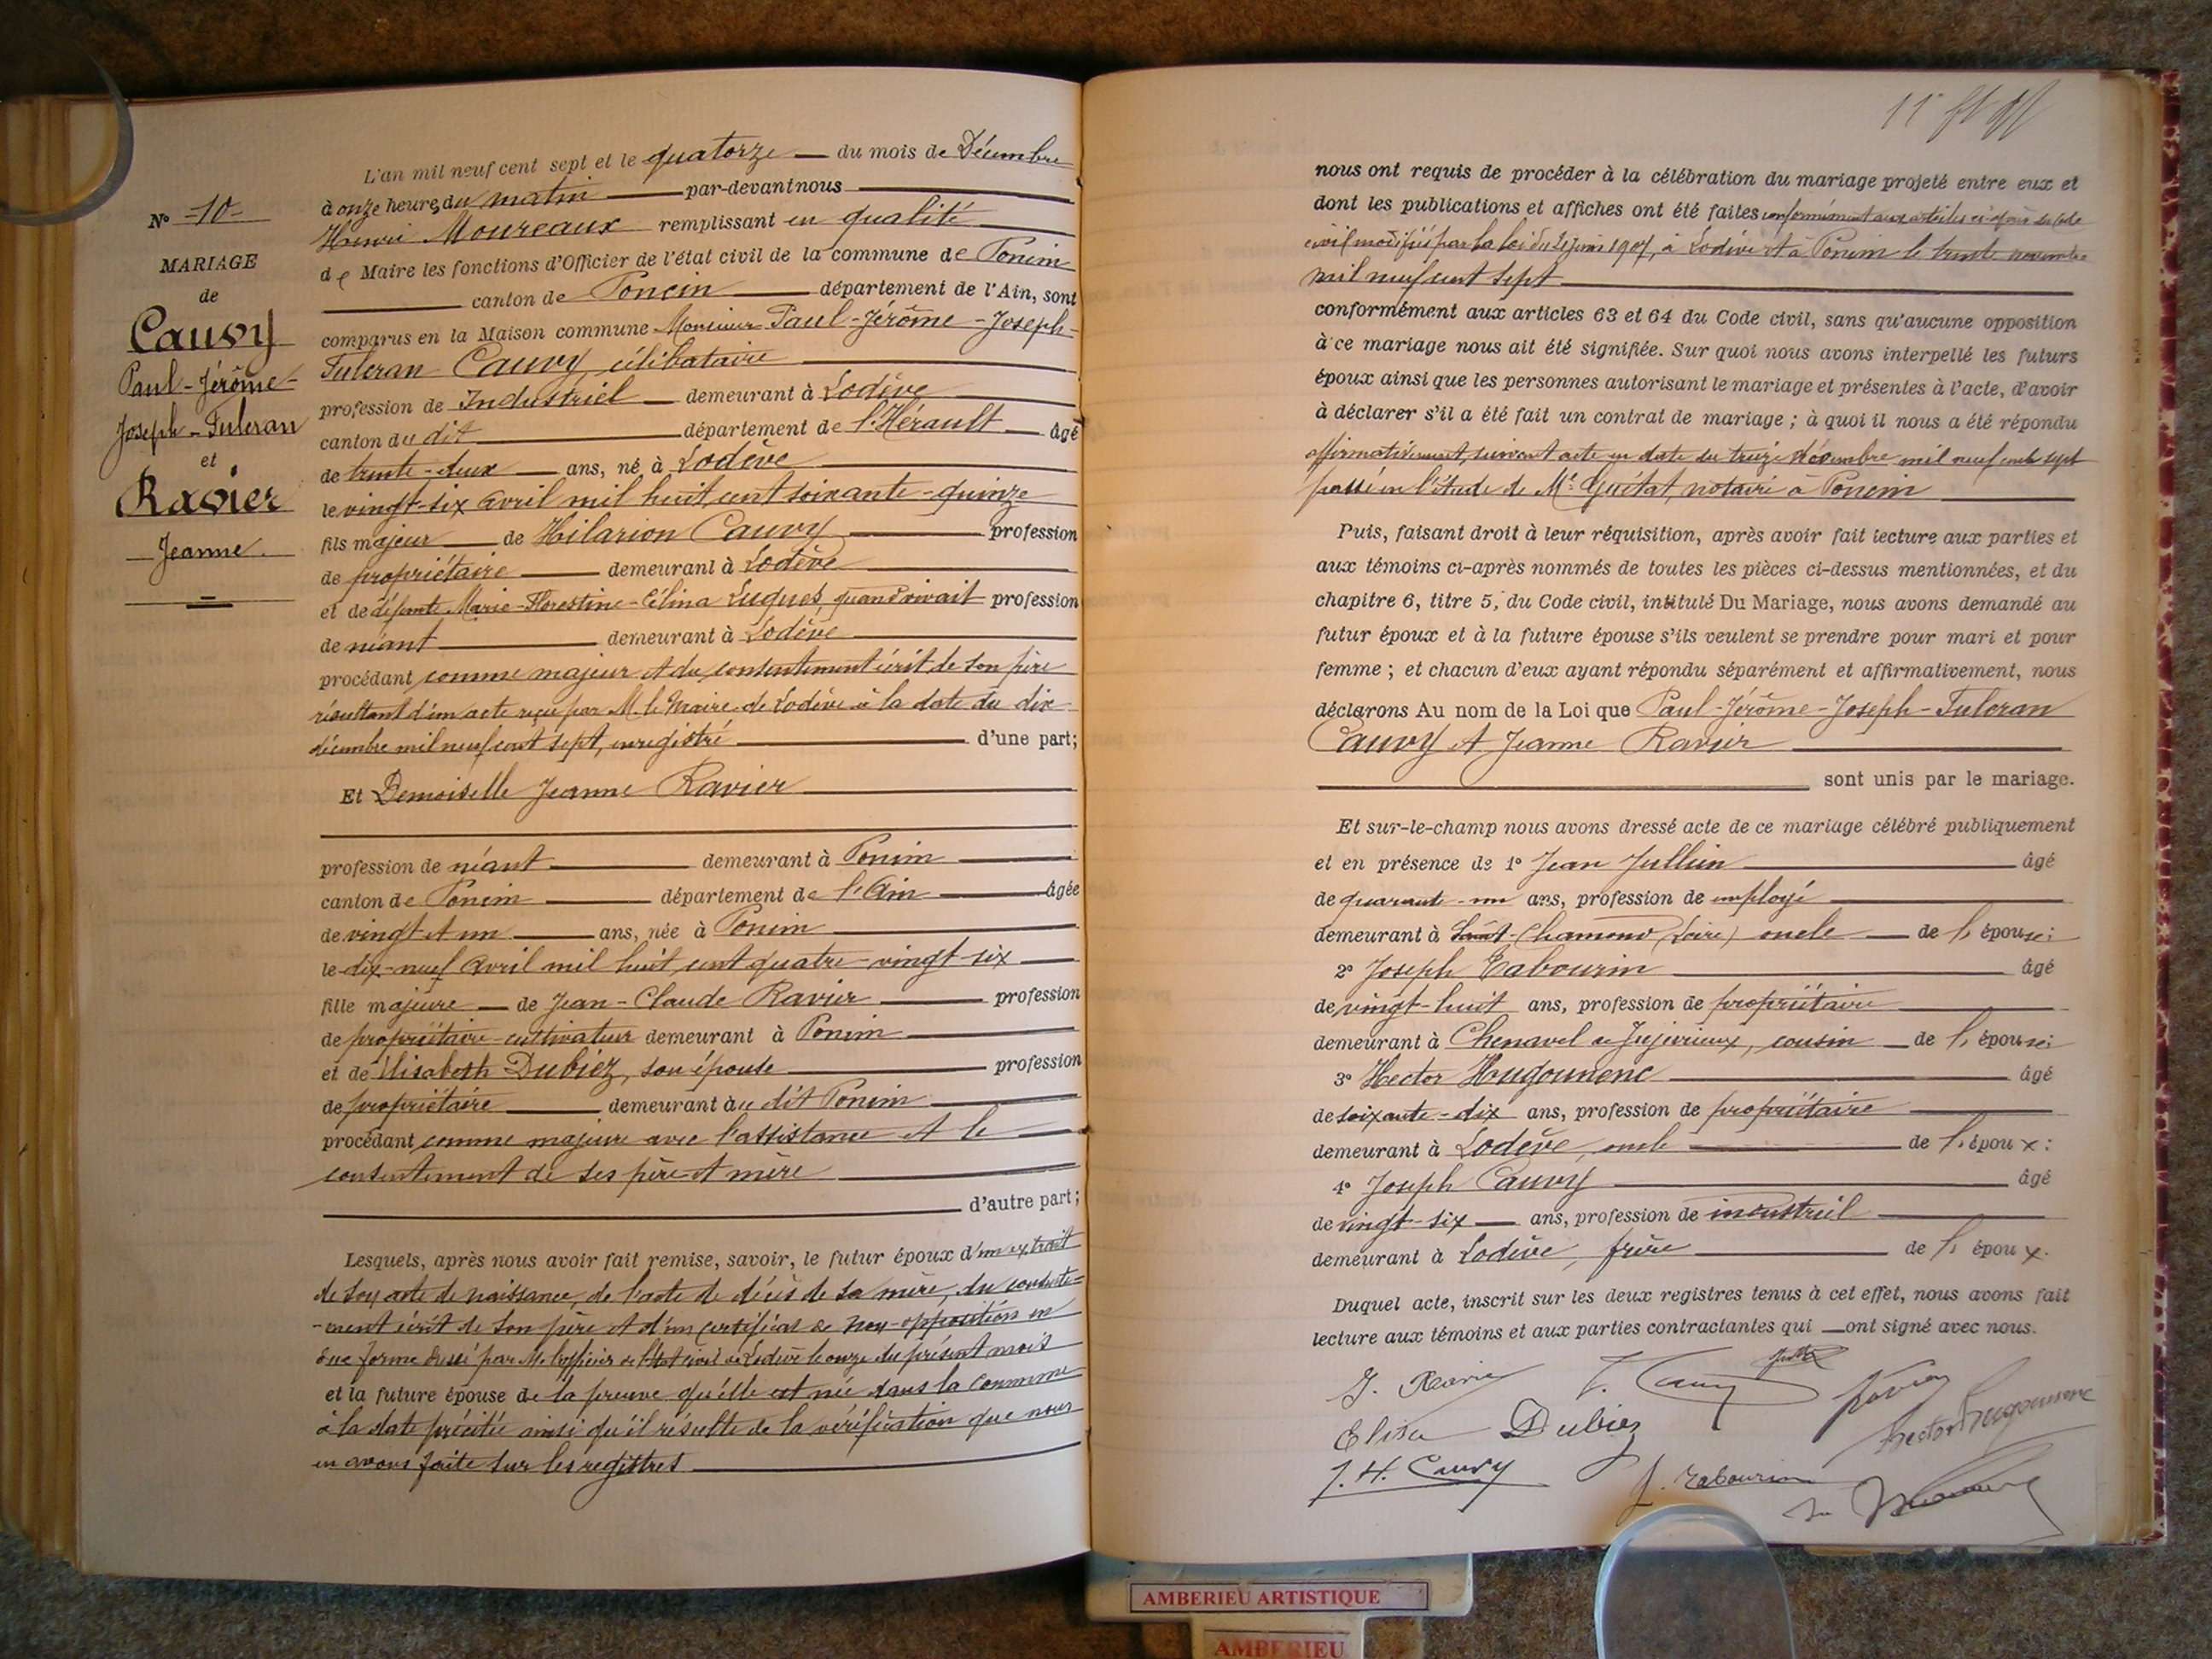 L'an mil neuf cent sept et le quatorze du mois de Décembre
à onze heures du matin par-devant nous
Henri Moureaux remplissant en qualité
de Maire les fonctions d'Officier de l'état civil de la commune de Poncin
canton de Poncin département de l'Ain, sont
comparus en la Maison commune Monsieur Paul-Jérôme-Joseph-
Fulcran Cauvy, célibataire
profession de Industriel demeurant à Lodève
canton du dit département de l'Hérault âgé
de trente-deux ans, né à Lodève
le vingt-six avril mil huit cent soixante-quinze
fils majeur de Hilarion Cauvy profession
de propriétaire demeurant à Lodève
et de défunte Marie-Florestine-Célina Lugues, quand vivait profession
de néant demeurant à Lodève
procédant comme majeur et du consentement écrit de son père
résultant d'un acte reçu par M. le Maire de Lodève à la date du dix
décembre mil neuf cent sept, enregistré d'une part;
Et Demoiselle Jeanne Ravier
profession de néant demeurant à Poncin
canton de Poncin département de l'Ain âgée
de vingt et un ans, née à Poncin
le dix-neuf avril mil huit cent quatre-vingt-six
fille majeure de Jean-Claude Ravier profession
de propriétaire-cultivateur demeurant à Poncin
et de Elisabeth Dubiez, son épouse profession
de propriétaire demeurant au dit Poncin
procédant comme majeure avec l'assistance et le
consentement de ses père et mère
d'autre part;
Lesquels, après nous avoir fait remise, savoir, le futur époux d'un extrait
de son acte de naissance, de l'acte de décès de sa mère, du consente=
-ment écrit de son père et d'un certificat de non-opposition en
due forme dressé par M. l'officier de l'Etat civil de Lodève le onze du présent mois
et la future épouse de la preuve qu'elle est née dans la commune
à la date précitée ainsi qu'il résulte de la vérification que nous
en avons faite sur les registres
N° -10-
MARIAGE
de
Cauvy
Paul-Jérôme-
Joseph-Fulcran
et
Ravier
Jeanne
nous ont requis de procéder à la célébration du mariage projeté entre eux et
dont les publications et affiches ont été faites conformément aux articles ci-après du code
civil modifiés par la loi du 21 juin 1907, à Lodève et à Poncin le trente novembre
mil neuf cent sept
conformément aux articles 63 et 64 du Code civil, sans qu'aucune opposition
à ce mariage nous ait été signifiée. Sur quoi nous avons interpellé les futurs
époux ainsi que les personnes autorisant le mariage et présentes à l'acte, d'avoir
à déclarer s'il a été fait un contrat de mariage ; à quoi il nous a été répondu
affirmativement, suivant acte en date du treize décembre mil neuf cent sept
passé en l'étude de Me Guétat, notaire à Poncin
Puis, faisant droit à leur réquisition, après avoir fait lecture aux parties et
aux témoins ci-après nommés de toutes les pièces ci-dessus mentionnées, et du
chapitre 6, titre 5, du Code civil, intitulé Du Mariage, nous avons demandé au
futur époux et à la future épouse s'ils veulent se prendre pour mari et pour
femme ; et chacun d'eux ayant répondu séparément et affirmativement, nous
déclarons Au nom de la Loi que Paul-Jérôme-Joseph-Fulcran
Cauvy et Jeanne Ravier
sont unis par le mariage.
Et sur-le-champ nous avons dressé acte de ce mariage célébré publiquement
et en présence de 1° Jean Jullien âgé
de quarante-un ans, profession de employé
demeurant à Saint-Chamond (Loire) oncle de l'épouse;
2° Joseph Tabourin âgé
de vingt-huit ans, profession de propriétaire
demeurant à Chenavel de Jujurieux, cousin de l'épouse;
3° Hector Hugounenc âgé
de soixante-dix ans, profession de propriétaire
demeurant à Lodève, oncle de l'époux:
4° Joseph Cauvy âgé
de vingt-six ans, profession de industriel
demeurant à Lodève, frère de l'époux.
Duquel acte, inscrit sur les deux registres tenus à cet effet, nous avons fait
lecture aux témoins et aux parties contractantes qui ont signé avec nous.
J. Ravier Cauvy Ravier
Elisa Dubiez Hector Hugounenc
J. H. Cauvy J. Tabourin
AMBERIEU ARTISTIQUE
AMBERIEU